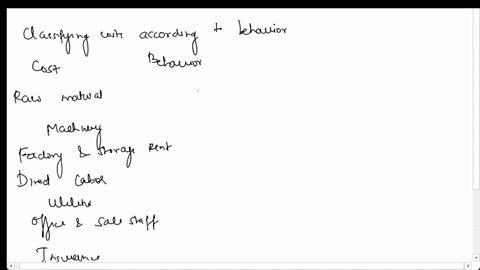 Classifying costs according to behavior
Cost Behavior
Raw material
Machinery
Factory & storage Rent
Direct Labor
Utilities
Office & sale staff
Insurance